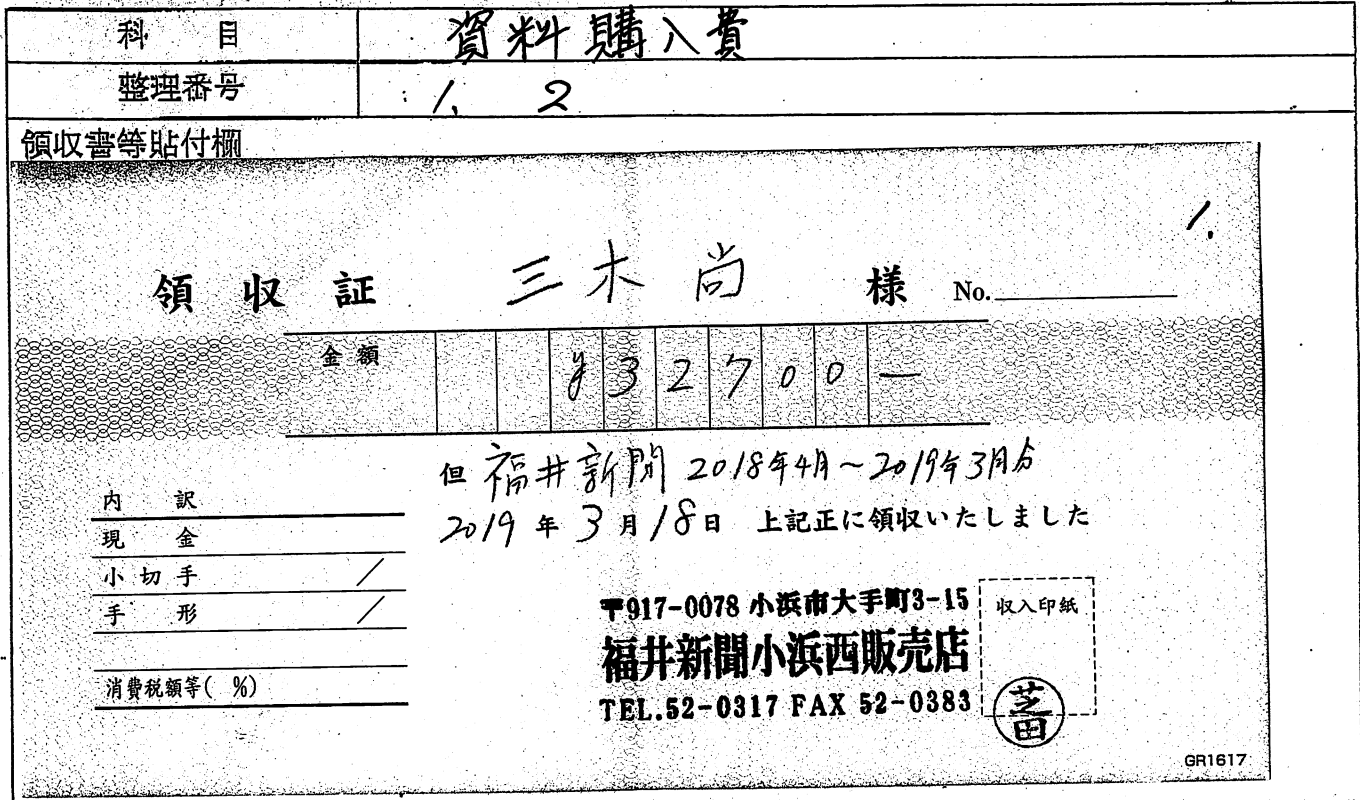 科目 資料購入費
整理番号 1. 2
領収書等貼付欄
1.
領収証 三木尚 様 No.
金額 ¥32700—
但 福井新聞 2018年4月〜2019年3月分
2019年3月18日 上記正に領収いたしました
内訳
現金
小切手 /
手形 /
消費税額等( %)
〒917-0078 小浜市大手町3-15
福井新聞小浜西販売店
TEL.52-0317 FAX 52-0383
収入印紙
芝田
GR1617